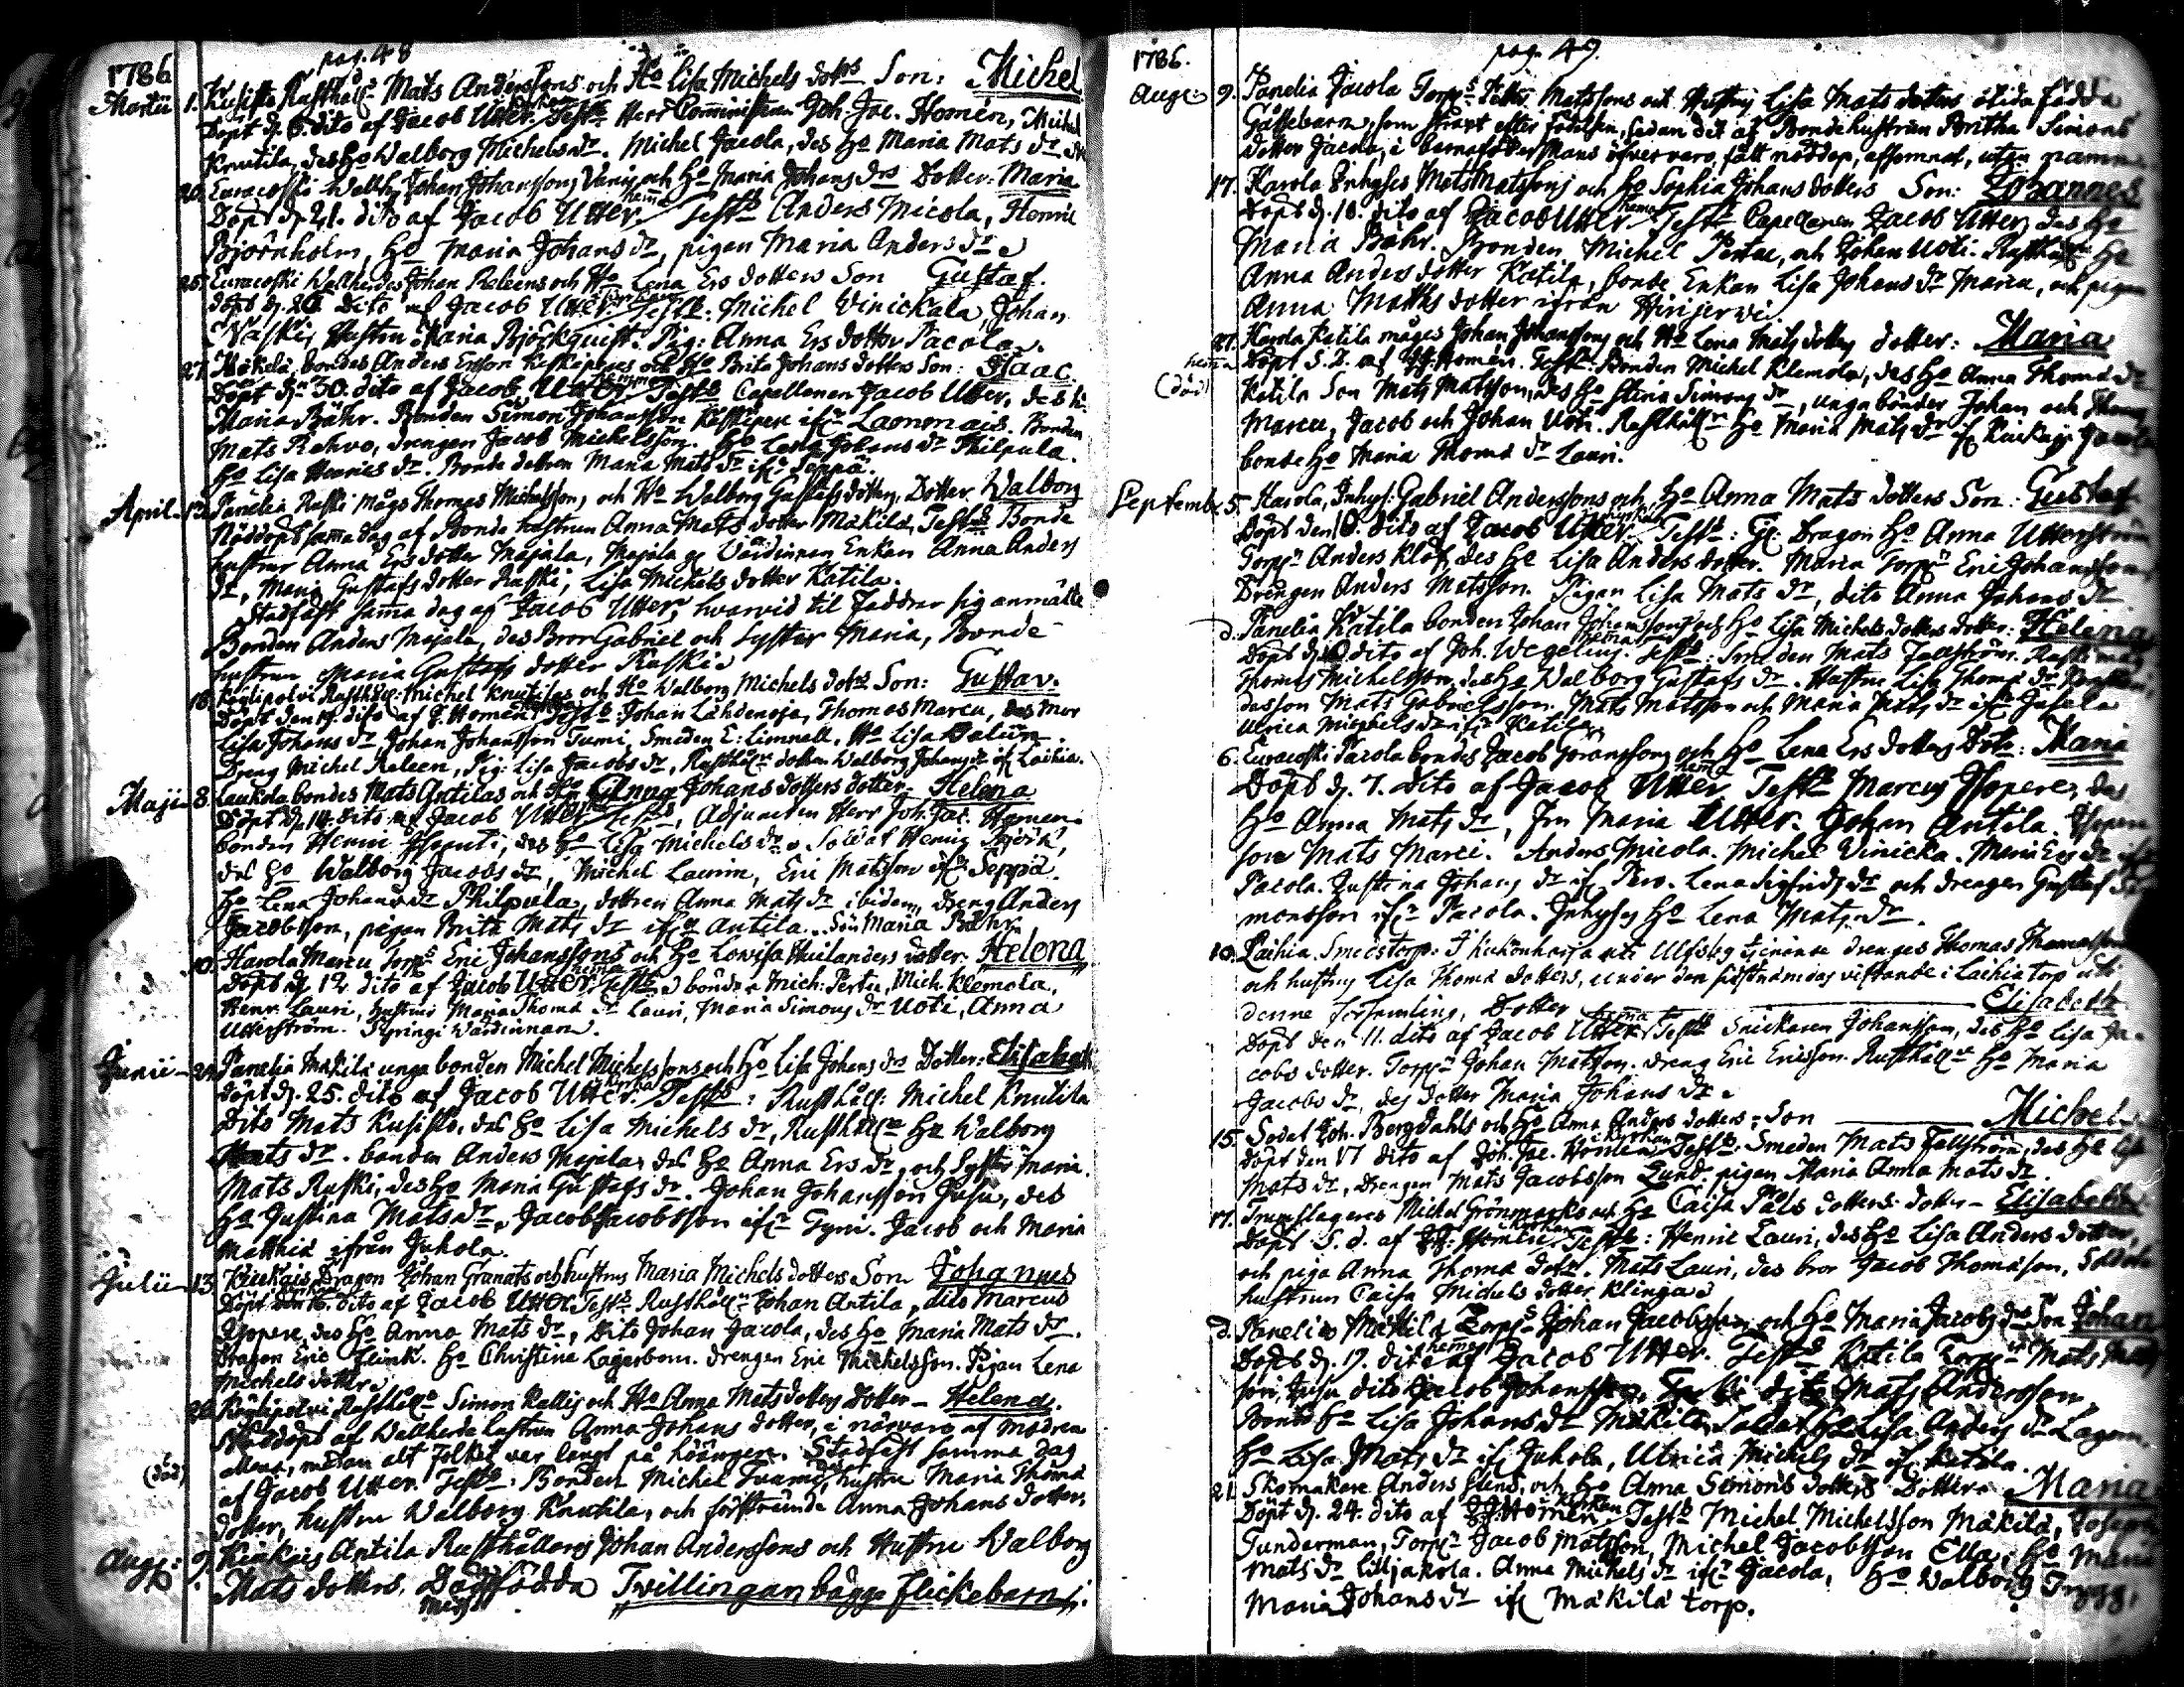 pag. 48
1786
Martii 1. Kusisto Rusthåll: Mats Anderssons och Ho Lisa Michels dotrs Son: Michel
Döpt d. 6. dito af Jacob Utter. Testb Herr Comministern Joh. Jac. Homén, Michel
Knutila, des Ho Walborg Michelsdr. Michel Jacola, des Ho Maria Mats dr
20. Euracoski Wallh. Johan Johanssons och Ho Maria Johans drs Dotter: Maria
Döpt d. 21. dito af Jacob Utter hema Testb Anders Micola, Henric
Björnholm, Ho Maria Johans dr, pigan Maria Anders dr
25. Euracoski Wallherdes Johan Releens och Ho Lena Ers dotters Son Gustaf.
döpt d. 26 dito af Jacob Utter. Testb: Michel Vinickala, Johan
Naski, Hustru Maria Björckquist. Pig: Anna Ers dotter Pacola.
27. Mäkelä bondes Anders Ersson och Ho Brita Johans dotters Son: Isaac.
Döpt dn 30. dito af Jacob Utter Testb Capellanen Jacob Utter, des h:
Maria Bähr. Bonden Simon Johansson Käkspere ifr Lamonais. Bonden
Mats Rahvo, drengen Jacob Michelsson. Ho Lena Johans dr Philpula.
Ho Lisa Henrics dr. Bonde dottren Maria Mats dr ifr Seppä.
April. 12. Panelia Raski mågs Thomas Michelssons, och Ho Walborg Gustafsdotters, Dotter Walborg
Nöddöpt samma dag af Bonde hustrun Anna Mats dotter Mäkilä, Testb Bonde
hustrur Anna Ers dotter Majala, Majala gl Värdinnan Enkan Anna Anders
dr, Maria Gustafs dotter Raski, Lisa Michels dotter Katila.
Stadfäst samma dag af Jacob Utter, hvarvid til Faddrar sig anmälte
Bonden Anders Majala, des Bror Gabriel och Syster Maria, Bonde
hustrun Maria Gustafs dotter Raski
18. Köylipolvi Rusthåll: Michel Knutilas och Ho Walborg Michels dotrs Son: Gustav.
Döpt den 19. dito af J. Homén Testb Johan Lähdenoja, Thomas Marcu, des Mor
Lisa Johans dr Johan Johansson Tumi, Smeden E: Limnell, Ho Lisa Palün.
Dreng Michel Releen, Pig: Lisa Jacobs dr, Rusthålln dotter Walborg Johans dr ifr Laihia.
Maji 8. Laukola bondes Mats Antilas och Ho Anna Johans dotters dotter - Helena
Döpt d. 14. dito af Jacob Utter Testb, Adjuncten Herr Joh. Jac. Homén
bonden Henric Isoputi, des Ho Lisa Michels dr, Soldat Henric Björk,
des Ho Walborg Jacobs dr, Michel Laurin, Eric Matsson ifr Seppä.
Ho Lena Johans dr Philpula, dottren Anna Mats dr ibidem, dreng Anders
Jacobsson, pigan Brita Mats dr ifr Antila. Maria Bähr.
10. Harola Marcu Torps Eric Johanssons och Ho Lowisa Huilanders dotter. Helena
Döpt d. 12 dito af Jacob Utter hema Testb bönder Mich: Pertu, Mich. Klemola,
Henr. Lauri, hustrur Maria Thoma dr Lauri, Maria Simons dr Uoti, Anna
Utterström. Syringi Värdinnan.
Junii 24. Panelia Mäkilä unga bonden Michel Michelssons och Ho Lisa Johans drs Dotter: Elisabeth
döpt d. 25. dito af Jacob Utter. kyrka Testb: Rusthåll: Michel Knutila
Dito Mats Kusisto, des Ho Lisa Michels dr, Rusthålln Ho Walborg
Mats dr. bonden Anders Majala, des Ho Anna Ers dr, och Syster Maria.
Mats Raski, des Ho Maria Gustafs dr. Johan Johansson Jusu, des
Ho Justina Mats dr, Jacob Jacobsson ifr Tyni. Jacob och Maria
Matthiä ifrån Juhola.
Julii 13. Kiukais Dragon Johan Granats och hustrus Maria Michels dotters Son Johannes
Döpt den 16. dito af Jacob Utter Testb Rusthålln Johan Antila, dito Marcus
Isopere, des Ho Anna Mats dr, Dito Johan Jacola, des Ho Maria Mats dr.
Dragon Eric Flink. Ho Christina Lagerbom. Drengen Eric Michelsson. Pigan Lena
Michels dotter
26. Köylipolvi Rusthålln Simon Kallis och Ho Anna Mats dotters Dotter - Helena.
Nöddöpt af Wallherde hustrun Anna Johans dotter, i närvaro af modren
allena, medan alt Folket var långt på höängen. Stadfäst samma dag
(död) af Jacob Utter. Testb: Bonden Michel Tuomi, hustru Maria Thoma
dotter, hustru Walborg Knutila, och förstnämde Anna Johans dotter.
Aug: 9. Kiukais Antila Rusthållares Johan Anderssons och Hustru Walborg
Mats dotters, Dödfödda Twillingar bägge flickebarn.
pag. 49.
1786.
Aug: 9. Panelia Jacola Torps Petter Matssons och Hustrus Lisa Mats dotters otida födda
Gåssebarn, som strax efter födslen, sedan det af Bondehustrun Britha Simons
dotter Jacola, i barnafödermans öfvervaro, fått nöddop, afsomnat, utan namn.
17. Harola Inhyses Mats Matssons och Ho Sophia Johans dotters Son: Johannes
Döpt d. 18. dito af Jacob Utter hema Testb Capellanen Jacob Utter, des Ho
Maria Bähr. Bonden Michel Pertu, och Johan Uoti. Rusthålln Ho
Anna Anders dotter Katila, bonde Enkan Lisa Johans dr Marcu, och pigan
Anna Matths dotter ifrån Hinjerwi.
27. Harola Katila måges Johan Johanssons och Ho Lena Mats dotters dotter: Maria
hema Döpt S. D. af JJ. Homén. Testb: Bonden Michel Klemola, des Ho Anna Thoma dr
(död) Katila Son Mats Matsson, des Ho Stina Simons dr, unga bönder Johan och Thomas
Marcu, Jacob och Johan Uoti. Rusthålln Ho Maria Mats dr ifr Kiukais Jacola
bonde Ho Maria Thoma dr Lauri.
Septemb: 5. Harola, Inhys: Gabriel Anderssons och Ho Anna Mats dotters Son: Gustaf
Döpt den 6. dito af Jacob Utter Testb: Gl: Dragon Ho Anna Utterström
Torpn Anders Klöf, des Ho Lisa Anders dotter. Marcu Torpn Eric Johansson
Drengen Anders Matsson. Pigan Lisa Mats dr, dito Anna Johans dr
d. Panelia Katila bonden Johan Johanssons och Ho Lisa Michels dotters dotter: Helena
Döpt d. 6 dito af Joh. Wegelius hema Testb: Smeden Mats Fallström. Raski måg
Thomas Michelsson, des Ho Walborg Gustafs dr. Hustru Lisa Thoma dr
desson Mats Gabrielsson. Mats Matsson och Maria Mats dr ifr Jusela
Ulrica Michels dr ifr Katila
6. Euracoski Pacola bondes Jacob Göranssons och Ho Lena Ers dotters Dott: Maria
Döpt d. 7. dito af Jacob Utter hema Testb Marcus Isopere, des
Ho Anna Mats dr, Fru Maria Utter. Johan Antila. Isopere
son Mats Marci. Anders Micola. Michel Vinicka. Maria Ers dr ifr
Pacola. Justina Johans dr ifr Pero. Lena Sigfrids dr och drengen Gustaf Si-
monsson ifr Pacola. Inhyses Ho Lena Mats dr.
10. Laihia Smedstorp. I Kiukonharja uti Ulfsby tjenande drenges Thomas Thomasson
och hustrus Lisa Thoma dotters, under den sistnämdas vistande i Laihia torp uti
denne församling, Dotter Elisabeth
Döpt den 11. dito af Jacob Utter hema Testb Snickaren Johansson, des Ho Lisa Ja-
cobs dotter. Torpn Johan Matsson. dreng Eric Ericsson. Rusthålln Ho Maria
Jacobs dr, des dotter Maria Johans dr
15. Sodat Joh. Bergdahls och Ho Anna Anders dotters Son Michel
Döpt den 17 dito af Joh. Jac. Homén i kyrkan Testb. Smeden Mats Fallström, des Ho Lisa
Mats dr, Drengen Mats Jacobsson Lund. pigan Maria Anna Mats dr.
17. Trumslagares Michel Grönmarks och Ho Caisa Påls dotters dotter - Elisabeth
Döpt S. d. af JJ: Homén kyrkan Testb: Henric Lauri, des Ho Lisa Anders dotter,
och piga Anna Thoma dotr. Mats Lauri, des bror Jacob Thomasson, Soldats
hustrun Caisa Michels dotter Klinga
d. Panelia Mäkilä Torps Johan Jacobsson och Ho Maria Jacobs drs Son Johan
Döpt d. 17. dito af Jacob Utter. hema Testb Katila Torpn Mats Mats
son, Jusu dito Jacob Johansson, dito Mats Andersson,
Bonde Ho Lisa Johans dr Mäkilä, Soldat Ho Lisa Anders dr Lagern.
Ho Lisa Mats dr ifr Juhola, Ulrica Michels dr ifr Katila.
21. Skomakare Anders Stens, och Ho Anna Simons dotters Dotter Maria
Döpt d. 24. dito af JJ. Homén kyrkan Testb Michel Michelsson Mäkilä, Joseph
Tunderman, Torpn Jacob Matsson, Michel Jacobsson Ella, Ho Maria
Mats dr Liljakola. Anna Michels dr ifr Jacola, Ho Walborg Trygg,
Maria Johans dr ifr Mäkilä torp.